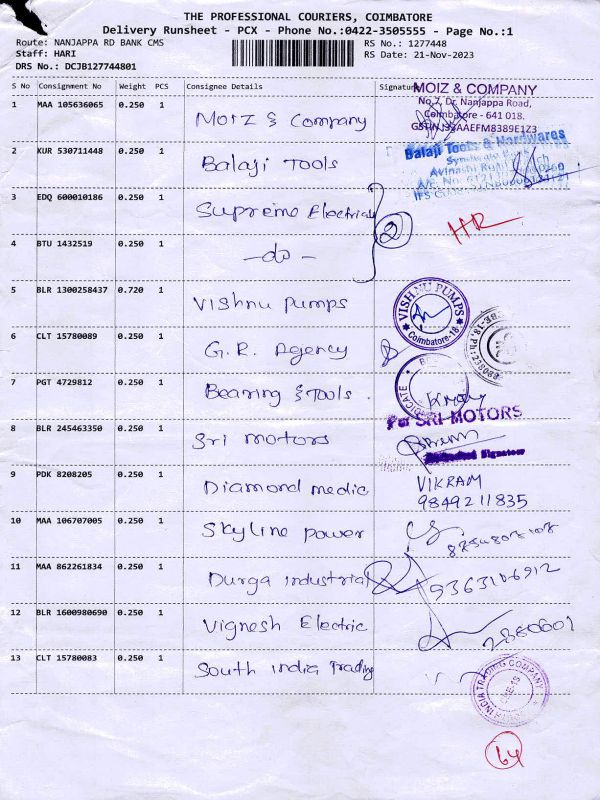 THE PROFESSIONAL COURIERS, COIMBATORE
Delivery Runsheet - PCX - Phone No.:0422-3505555 - Page No.:1
Route: NANJAPPA RD BANK CMS
RS No.: 1277448
Staff: HARI
RS Date: 21-Nov-2023
DRS No.: DCJB127744801
S No Consignment No Weight PCS Consignee Details Signature
MOIZ & COMPANY
No.7, Dr. Nanjappa Road,
Coimbatore - 641 018.
GSTIN:33AAEFM8389E1Z3
1 MAA 105636065 0.250 1 Moiz & Company
Balaji Tools & Hardwares
2 KUR 530711448 0.250 1 Balaji Tools
3 EDQ 600010186 0.250 1 Supreme Electricals
2
HR
4 BTU 1432519 0.250 1 -do-
5 BLR 1300258437 0.720 1 Vishnu Pumps
VISHNU PUMPS
Coimbatore-18
6 CLT 15780089 0.250 1 G.R. Agency
7 PGT 4729812 0.250 1 Bearing & Tools.
For SRI MOTORS
8 BLR 245463350 0.250 1 Sri motors
Signatory
9 PDK 8208205 0.250 1 Diamond medic
VIKRAM
9849211835
10 MAA 106707005 0.250 1 Skyline Power
11 MAA 862261834 0.250 1 Durga industrial
9363106912
12 BLR 1600980690 0.250 1 Vignesh Electric
2380601
13 CLT 15780083 0.250 1 South India Trading
INDIA TRADING COMPANY
64